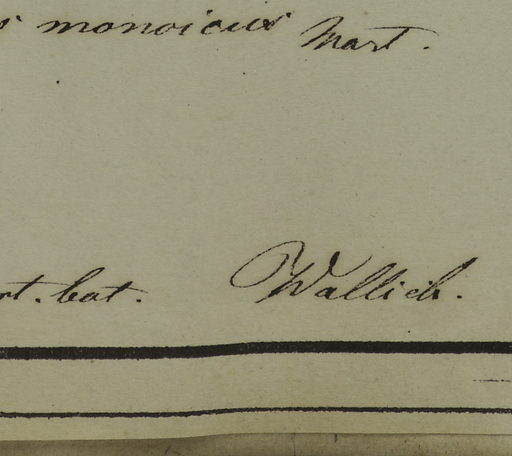 monoicus Mart.
rt. bot. Wallich.